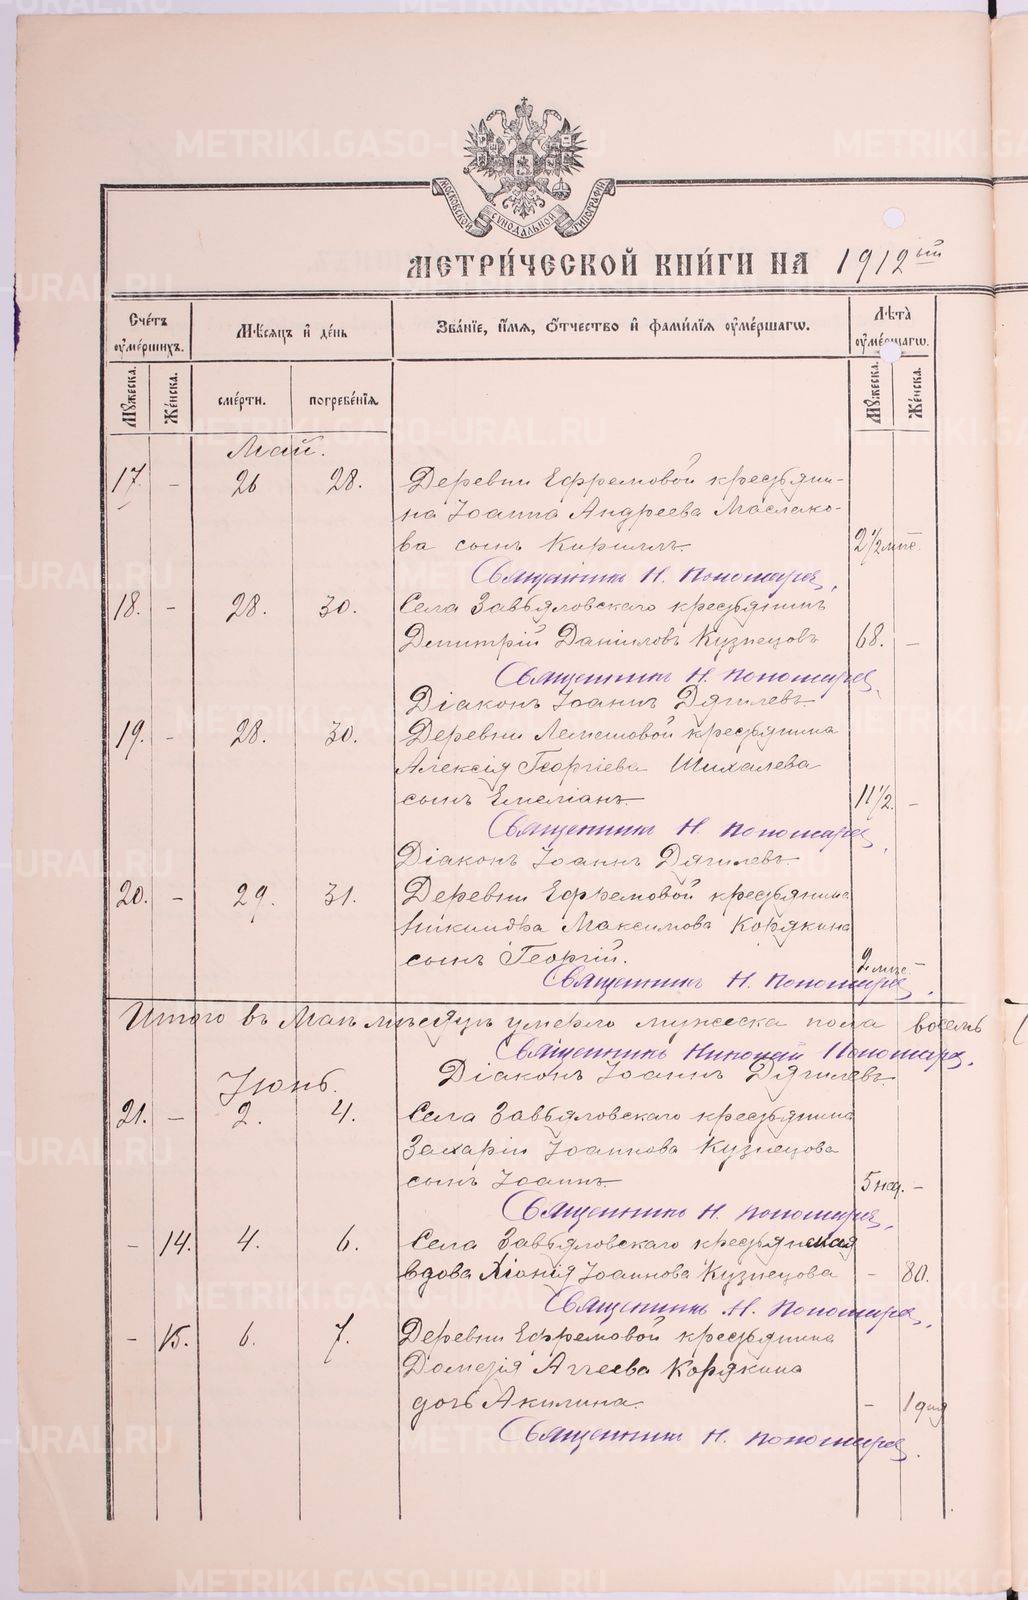 МОСКОВСКОЙ СУНОДАЛЬНОЙ ТИПОГРАФІИ
МЕТРИ́ЧЕСКОЙ КНИ́ГИ НА 1912ый
Сче́тъ оу҆ме́ршихъ.
Мѣ́сяцъ и҆ де́нь
Зва́нїе, и҆́мя, ѻ҆́тчество и҆ фами́лїя оу҆ме́ршагѡ.
Лѣ́та оу҆ме́ршагѡ.
Мꙋжеска. Же́нска. сме́рти. погребе́нїя Мꙋжеска. Же́нска.
Май.
17. - 26 28. Деревни Ефремовой крестьяни-
на Іоанна Андреева Маслако-
ва сынъ Кириллъ. 2 1/2 мѣс. -
Священникъ Н. Пономарев.
18. - 28. 30. Села Завьяловскаго крестьянинъ
Димитрій Даніиловъ Кузнецовъ 68. -
Священникъ Н. Пономарев.
Діаконъ Іоаннъ Дягилевъ
19. - 28. 30. Деревни Лемешовой крестьянина
Алексія Георгіева Шихалева
сынъ Емеліанъ. 11 1/2. -
Священникъ Н. Пономарев.
Діаконъ Іоаннъ Дягилевъ.
20. - 29. 31. Деревни Ефремовой крестьянина
Никиты Максимова Корякина
сынъ Георгій. 2 мѣс. -
Священникъ Н. Пономарев.
Итого въ Маѣ мѣсяцѣ умерло мужеска пола восемь
Священникъ Николай Пономарев.
Діаконъ Іоаннъ Дягилевъ.
Іюнь.
21. - 2. 4. Села Завьяловскаго крестьянина
Захаріи Іоаннова Кузнецова
сынъ Іоаннъ. 5 нед. -
Священникъ Н. Пономарев.
- 14. 4. 6. Села Завьяловскаго крестьянская
вдова Хіонія Іоаннова Кузнецова - 80.
Священникъ Н. Пономарев.
- 15. 6. 7. Деревни Ефремовой крестьянина
Аггеева Корякина
дочь Акилина. - 1 дня
Священникъ Н. Пономарев.
METRIKI.GASO-URAL.RU